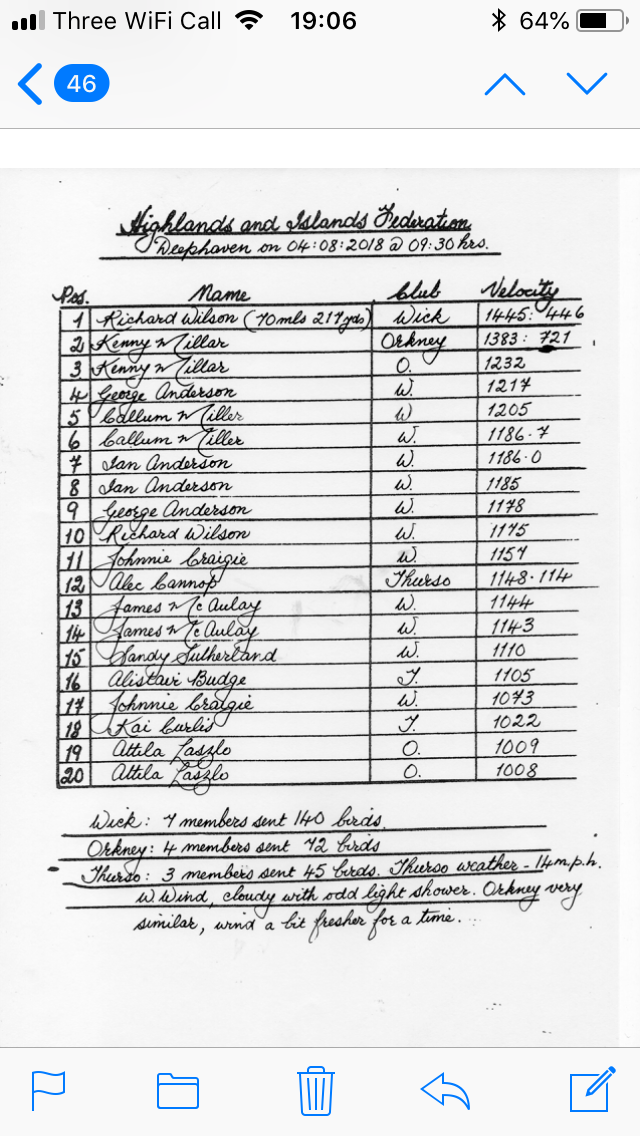 Three WiFi Call 19:06 64%
46
Highlands and Islands Federation
Deephaven on 04:08:2018 @ 09:30 hrs.
Pos. Name Club Velocity
1 Richard Wilson (70mls 217yds) Wick 1445: 446
2 Kenny Millar Orkney 1383: 721
3 Kenny Millar O. 1232
4 George Anderson W. 1217
5 Callum Miller W 1205
6 Callum Miller W. 1186.7
7 Ian Anderson W. 1186.0
8 Ian Anderson W. 1185
9 George Anderson W. 1178
10 Richard Wilson W. 1175
11 Johnnie Craigie W. 1157
12 Alec Cannop Thurso 1148.114
13 James McAulay W. 1144
14 James McAulay W. 1143
15 Sandy Sutherland W. 1110
16 Alistair Budge T. 1105
17 Johnnie Craigie W. 1073
18 Kai Curlis T. 1022
19 Attila Laszlo O. 1009
20 Attila Laszlo O. 1008
Wick: 7 members sent 140 birds
Orkney: 4 members sent 72 birds
Thurso: 3 members sent 45 birds. Thurso weather - 14 m.p.h.
W Wind, cloudy with odd light shower. Orkney very
similar, wind a bit fresher for a time.